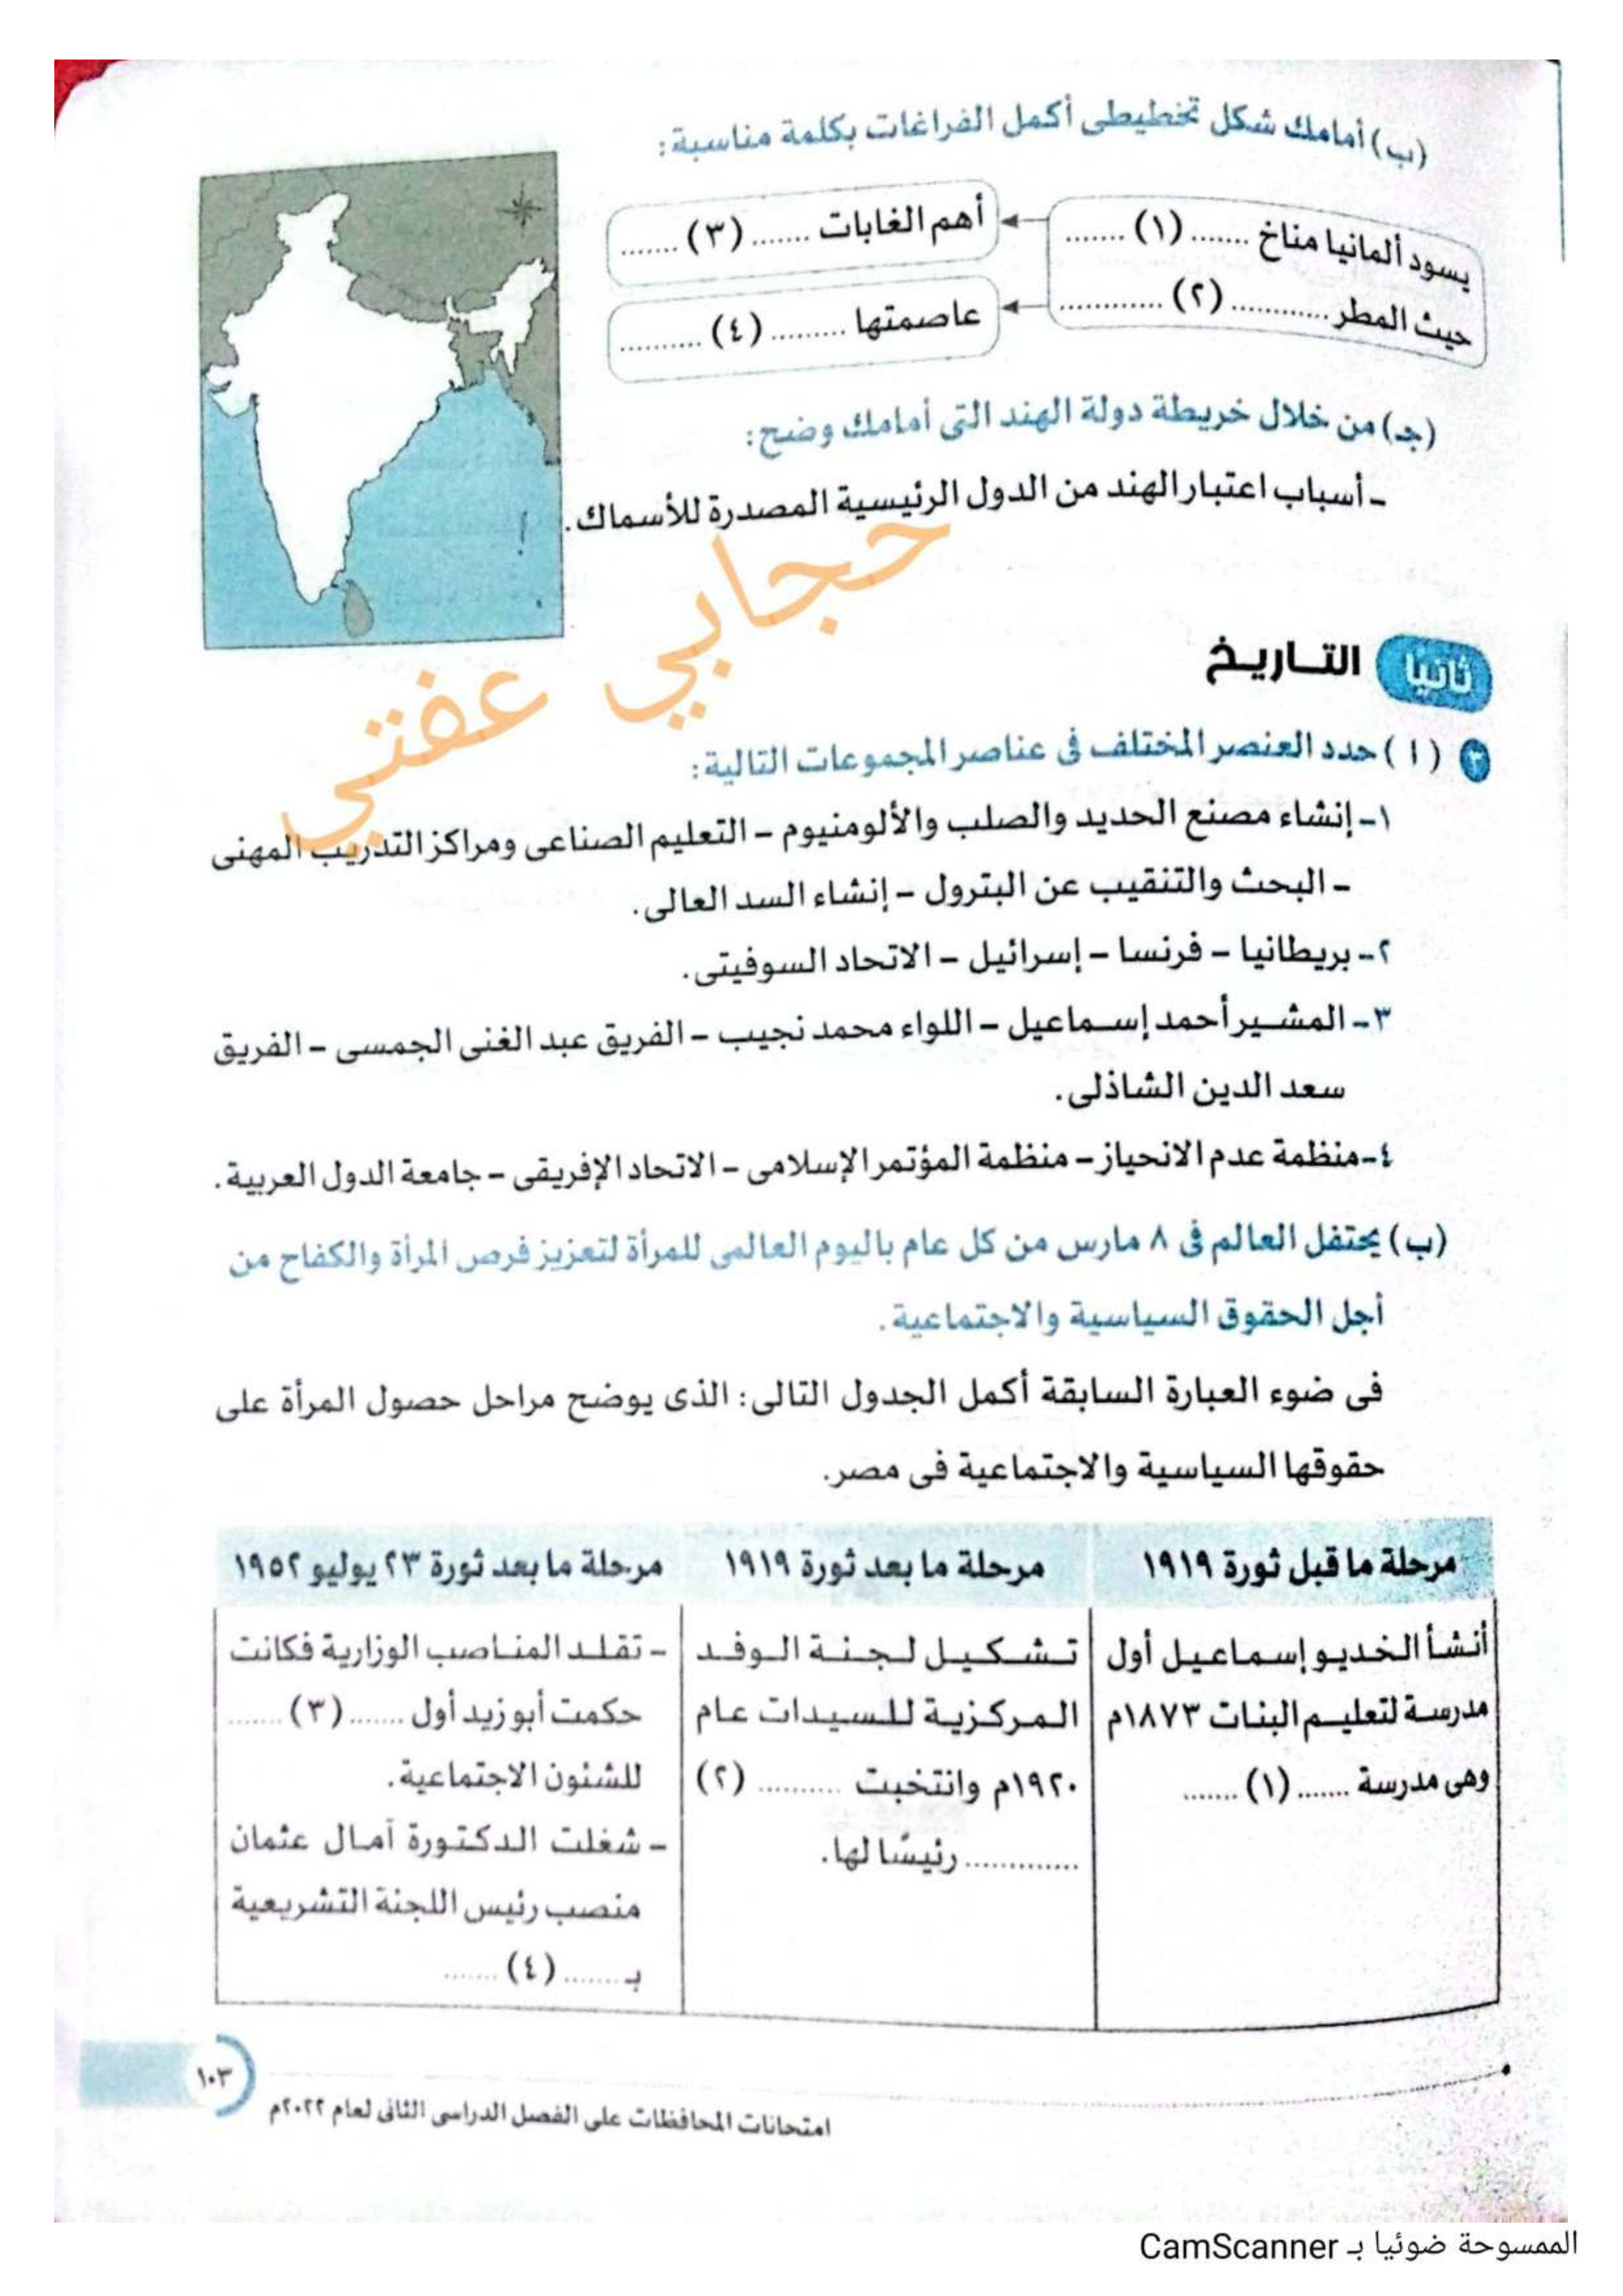 (ب) أمامك شكل تخطيطى أكمل الفراغات بكلمة مناسبة:
يسود ألمانيا مناخ ....... (١) .......
حيث المطر ............ (٢) ............
أهم الغابات ....... (٣) .......
عاصمتها ......... (٤) ..........
(جـ) من خلال خريطة دولة الهند التى أمامك وضح:
- أسباب اعتبار الهند من الدول الرئيسية المصدرة للأسماك.
حجابي عفتي
ثانيًا التـاريـخ
٣ ( أ ) حدد العنصر المختلف فى عناصر المجموعات التالية:
١- إنشاء مصنع الحديد والصلب والألومنيوم - التعليم الصناعى ومراكز التدريب المهنى
- البحث والتنقيب عن البترول - إنشاء السد العالى.
٢- بريطانيا - فرنسا - إسرائيل - الاتحاد السوفيتى.
٣- المشير أحمد إسماعيل - اللواء محمد نجيب - الفريق عبد الغنى الجمسى - الفريق
سعد الدين الشاذلى.
٤- منظمة عدم الانحياز - منظمة المؤتمر الإسلامى - الاتحاد الإفريقى - جامعة الدول العربية.
(ب) يحتفل العالم فى ٨ مارس من كل عام باليوم العالمى للمرأة لتعزيز فرص المرأة والكفاح من
أجل الحقوق السياسية والاجتماعية.
فى ضوء العبارة السابقة أكمل الجدول التالى: الذى يوضح مراحل حصول المرأة على
حقوقها السياسية والاجتماعية فى مصر.
مرحلة ما قبل ثورة ١٩١٩
مرحلة ما بعد ثورة ١٩١٩
مرحلة ما بعد ثورة ٢٣ يوليو ١٩٥٢
أنشأ الخديو إسماعيل أول
مدرسة لتعليم البنات ١٨٧٣م
وهى مدرسة ....... (١) .......
تشكيل لجنة الوفد
المركزية للسيدات عام
١٩٢٠م وانتخبت .......... (٢)
............. رئيسًا لها.
- تقلد المناصب الوزارية فكانت
حكمت أبو زيد أول ....... (٣) .......
للشئون الاجتماعية.
- شغلت الدكتورة آمال عثمان
منصب رئيس اللجنة التشريعية
بـ ....... (٤) .......
١٠٣
امتحانات المحافظات على الفصل الدراسى الثانى لعام ٢٠٢٢م
الممسوحة ضوئيا بـ CamScanner